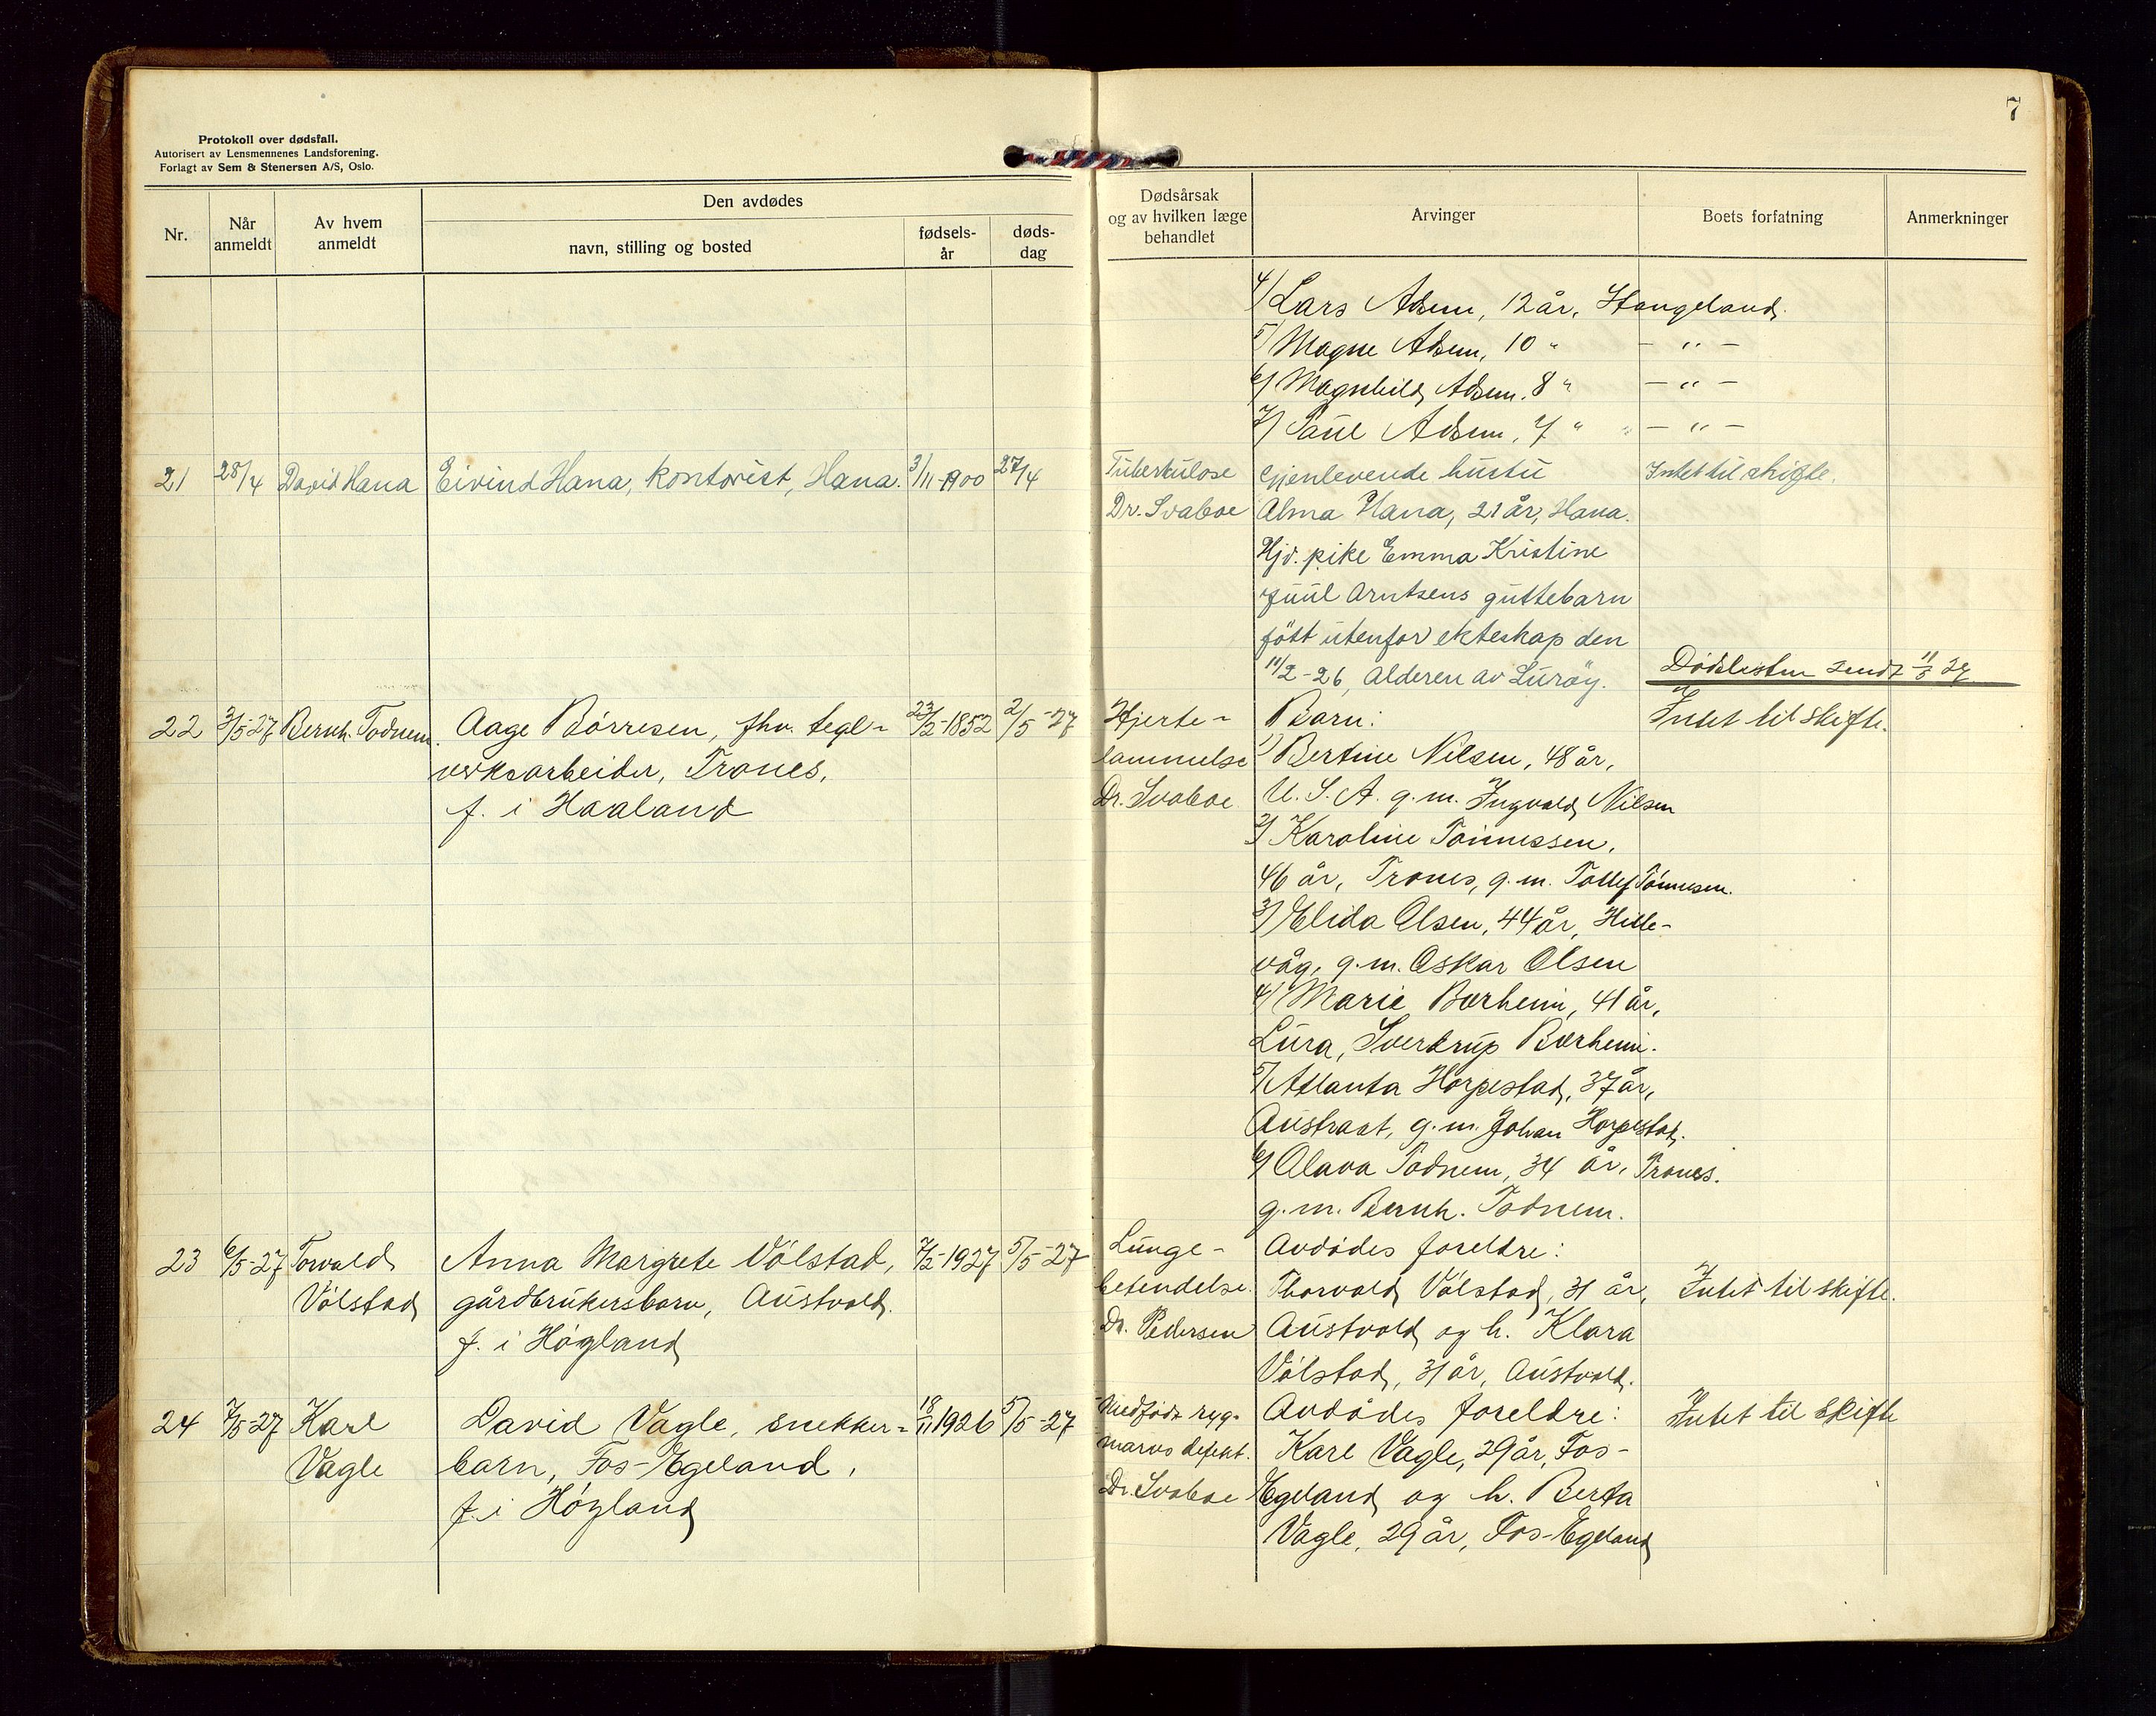 7
Protokoll over dødsfall.
Autorisert av Lensmennenes Landsforening.
Forlagt av Sem & Stenersen A/S, Oslo.
Nr.
Når anmeldt
Av hvem anmeldt
Den avdødes
navn, stilling og bosted
fødsels-år
døds-dag
Dødsårsak
og av hvilken læge
behandlet
Arvinger
Boets forfatning
Anmerkninger
4/ Lars Adsem, 12 år, Stangeland.
5/ Magne Adsem, 10 " — " —
6/ Magnhild Adsem. 8 " — " —
7/ Paul Adsem, 7 " " — " —
21 28/4 David Hana Eivind Hana, kontorist, Hana. 3/11 1900 27/4
Tuberkulose
Dr. Svaboe
Gjenlevende hustu
Alma Hana, 21 år, Hana.
Hjv. pike Emma Kristine
Juul Arntsens guttebarn
fött utenfor ekteskap den
11/2-26, Alderen av Luröy.
Intet til skifte.
Dødslisten sendt 11/5 27
22 3/5-27 Bernh. Todnem. Aage Börresen, fhv. tegl-
verksarbeider, Trones,
f. i Haaland
23/2-1852 2/5-27
Hjerte-
lammelse
Dr. Svaboe
Barn:
1) Bertine Nilsen, 48 år,
U. S. A. g. m. Ingvald Nilsen
2/ Karoline Tönnessen,
46 år, Trones, g. m. Tollef Tönnesen.
3/ Elida Olsen, 44 år, Hille-
våg, g. m. Oskar Olsen
4/ Marie Bærheim, 41 år,
Lura, Sverdrup Bærheim.
5/ Atlanta Horpestad, 37 år,
Austraat, g. m. Johan Horpestad.
6/ Olava Todnem, 34 år, Trones.
g. m. Bernh. Todnem.
Intet til skifte.
23 6/5-27 Torvald
Völstad
Anna Margrete Völstad,
gårdbrukersbarn, Austvold.
f. i Högland
7/2-1927 5/5-27
Lunge-
betendelse.
Dr. Pedersen
Avdödes foreldre:
Thorvald Völstad, 31 år,
Austvold og h. Klara
Völstad, 31 år, Austvold.
Intet til skifte.
24 7/5-27 Karl
Vagle
David Vagle, snekker-
barn, Fos-Egeland,
f. i Högland
18/11 1926 5/5-27
Medfödt ryg-
marvs defekt.
Dr. Svaboe
Avdödes foreldre:
Karl Vagle, 29 år, Fos-
Egeland og h. Berta
Vagle, 29 år, Fos-Egeland
Intet til skifte